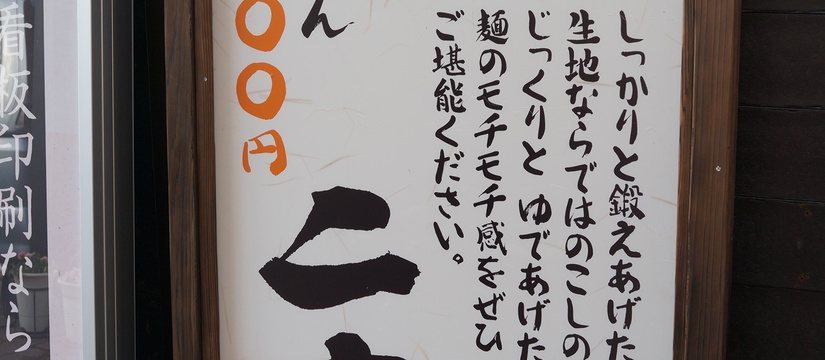 しっかりと鍛えあげた
生地ならではのこしの
じっくりと ゆであげた
麺のモチモチ感をぜひ
ご堪能ください。
ん
〇〇円
看板印刷なら